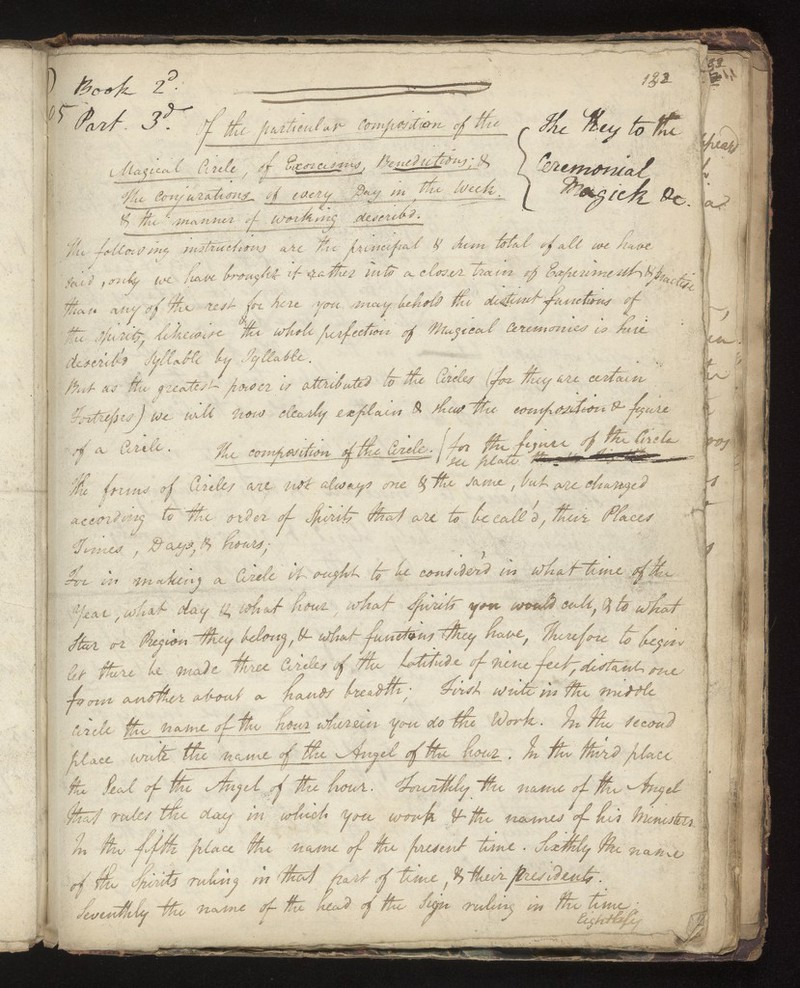 Book 2d.
122
Part. 3d. Of the particular composition of the
The Key to the
Ceremonial
Magick &c.
Magical Circle, of Exorcisms, Benedictions; &
the conjurations of every Day in the Week.
& the manner of working describ'd.
The following instructions are the principal & sum total of all we have
said, only we have brought it rather into a closer train of Experiment & practice
than any of the rest for here you may behold the distinct functions of
the spirits, likewise the whole perfection of Magical Ceremonies is here
describ'd Syllable by Syllable.
But as the greatest power is attributed to the Circles (for they are certain
Fortresses) we will now clearly explain & shew the composition & figure
of a Circle. The composition of the Circle. (for the figure of the Circle
see plate
The forms of Circles are not always one & the same, but are changed
according to the order of Spirits that are to be call'd, their Places
Times, Days, & hours;
For in making a Circle it ought to be consider'd in what time of the
Year, what day & what hour, what Spirits you would call, & to what
Star or Region they belong, & what functions they have, Therefore to begin
let there be made three Circles of the Latitude of nine feet, distant one
from another about a hands breadth; First write in the middle
circle the name of the hour wherein you do the Work. In the second
place write the name of the Angel of the hour. In the third place
the Seal of the Angel of the hour. Fourthly the name of the Angel
that rules the day in which you work & the names of his Ministers.
In the fifth place the name of the present time. Sixthly the name
of the Spirits ruling in that part of time, & their Presidents.
Seventhly the name of the head of the Sign ruling in the time.
Eighthly